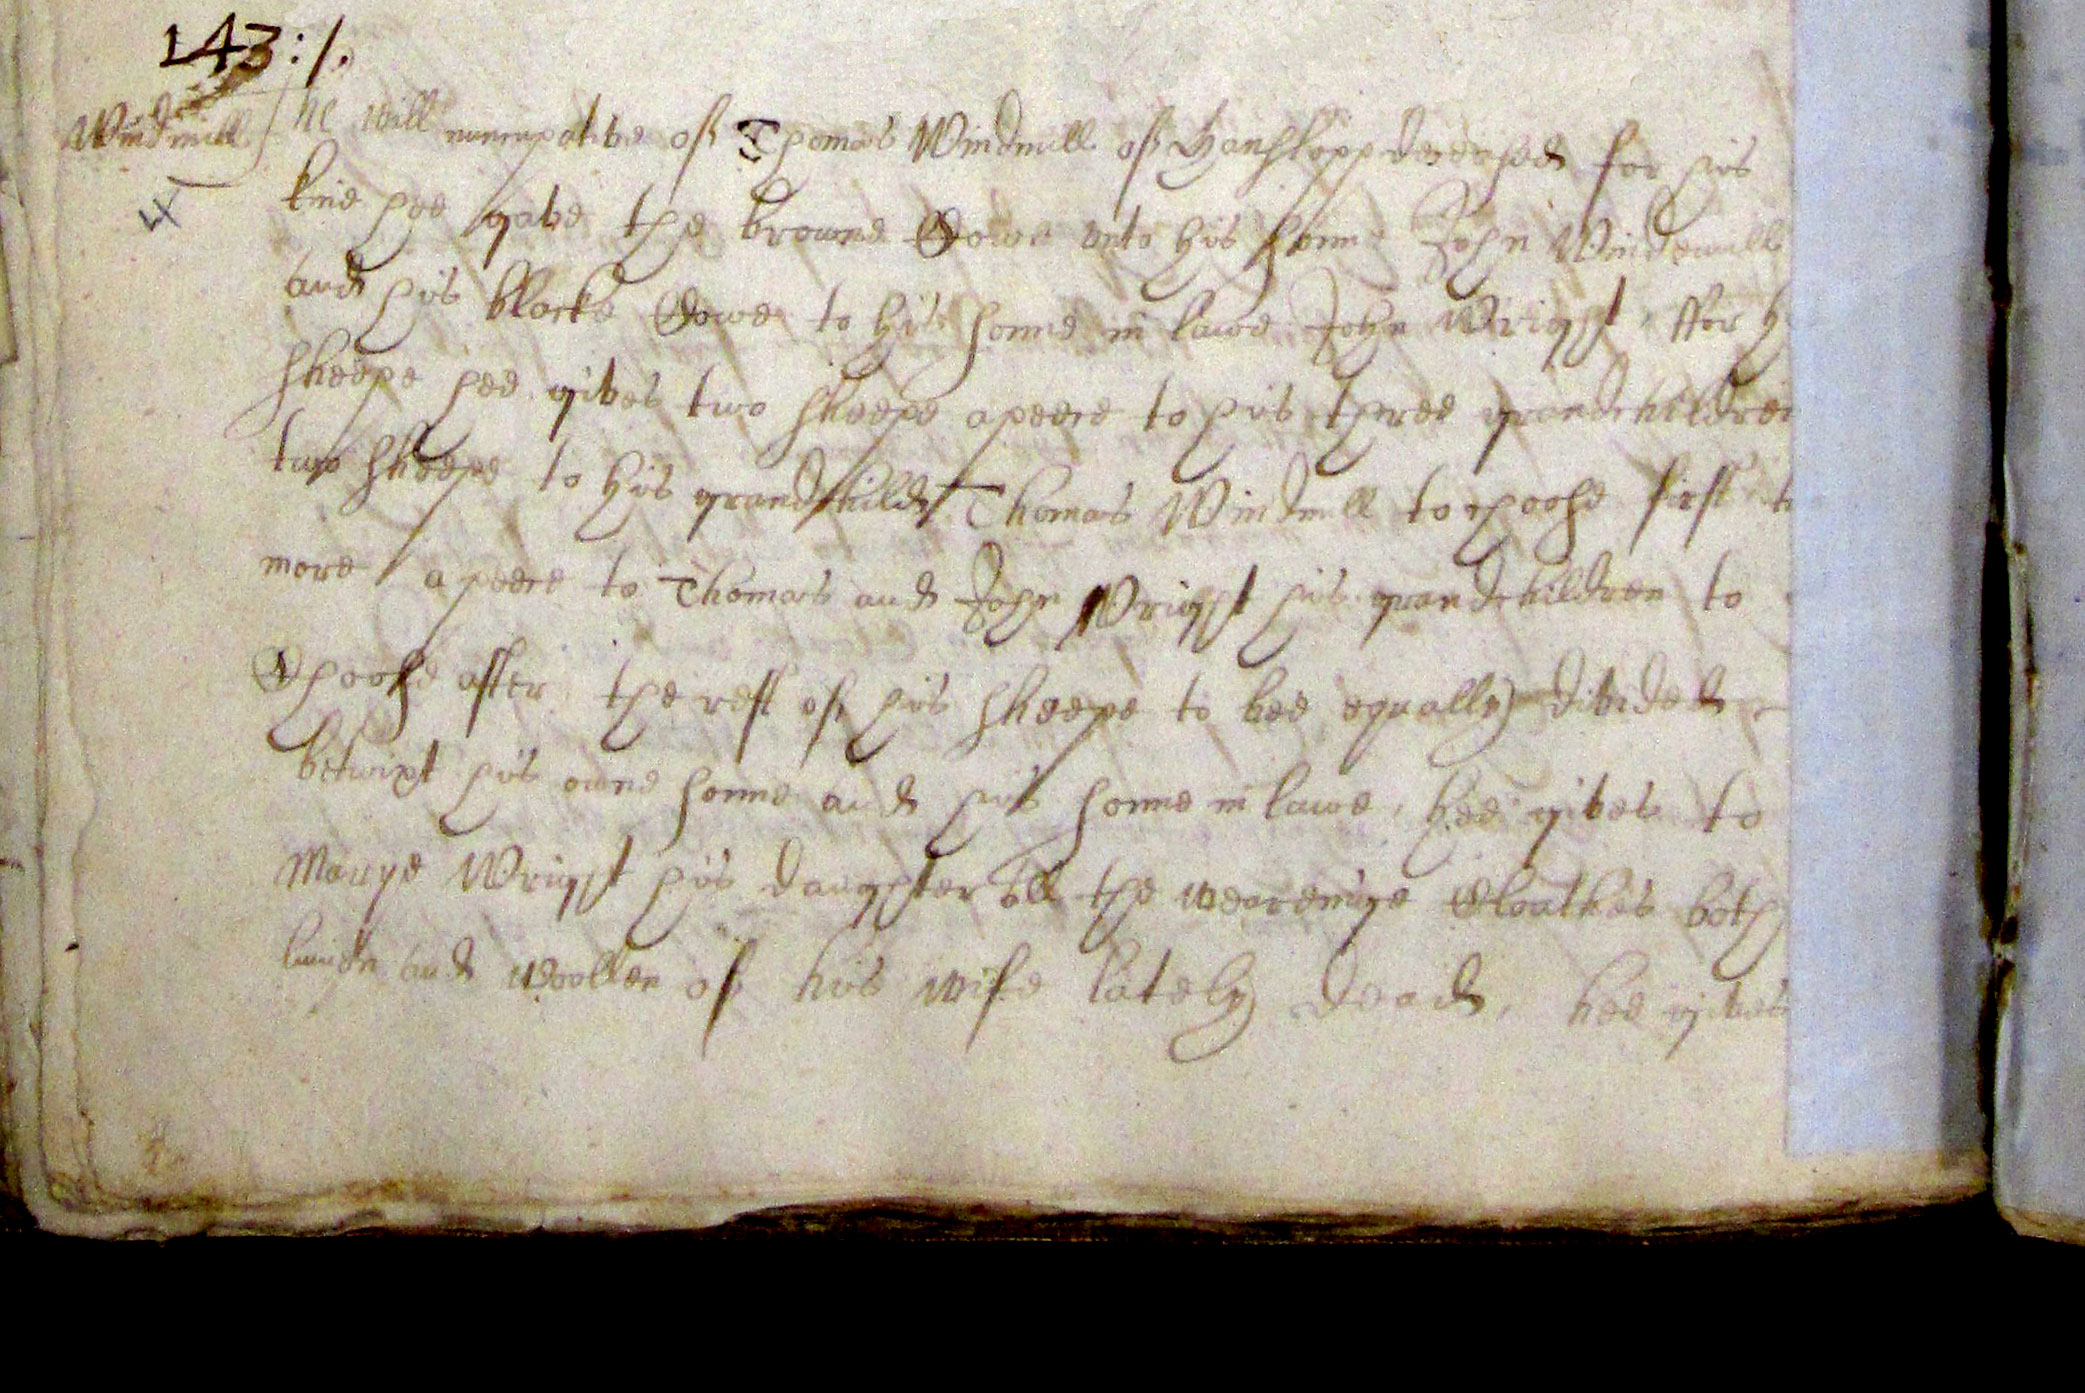 143:/.
Windmill
he will nuncupative of Thomas Windmill of Hanslopp deceased for his
kine hee gave the browne Cowe unto his sonne John Windemill
and his blacke Cowe to his sonne in lawe John Wright ffor h
sheepe hee gives two sheepe a peece to his three grandchildren
two sheepe to his grandchilde Thomas Windmill to choose first t
more a peece to Thomas and John Wright his grandchildren to
Choose after the rest of his sheepe to bee equally divided
betwixt his owne sonne and his sonne in lawe, hee gives to
Marye Wright his daughter all the wearenige Cloathes both
linnen and woollen of his wife lately dead, hee gives